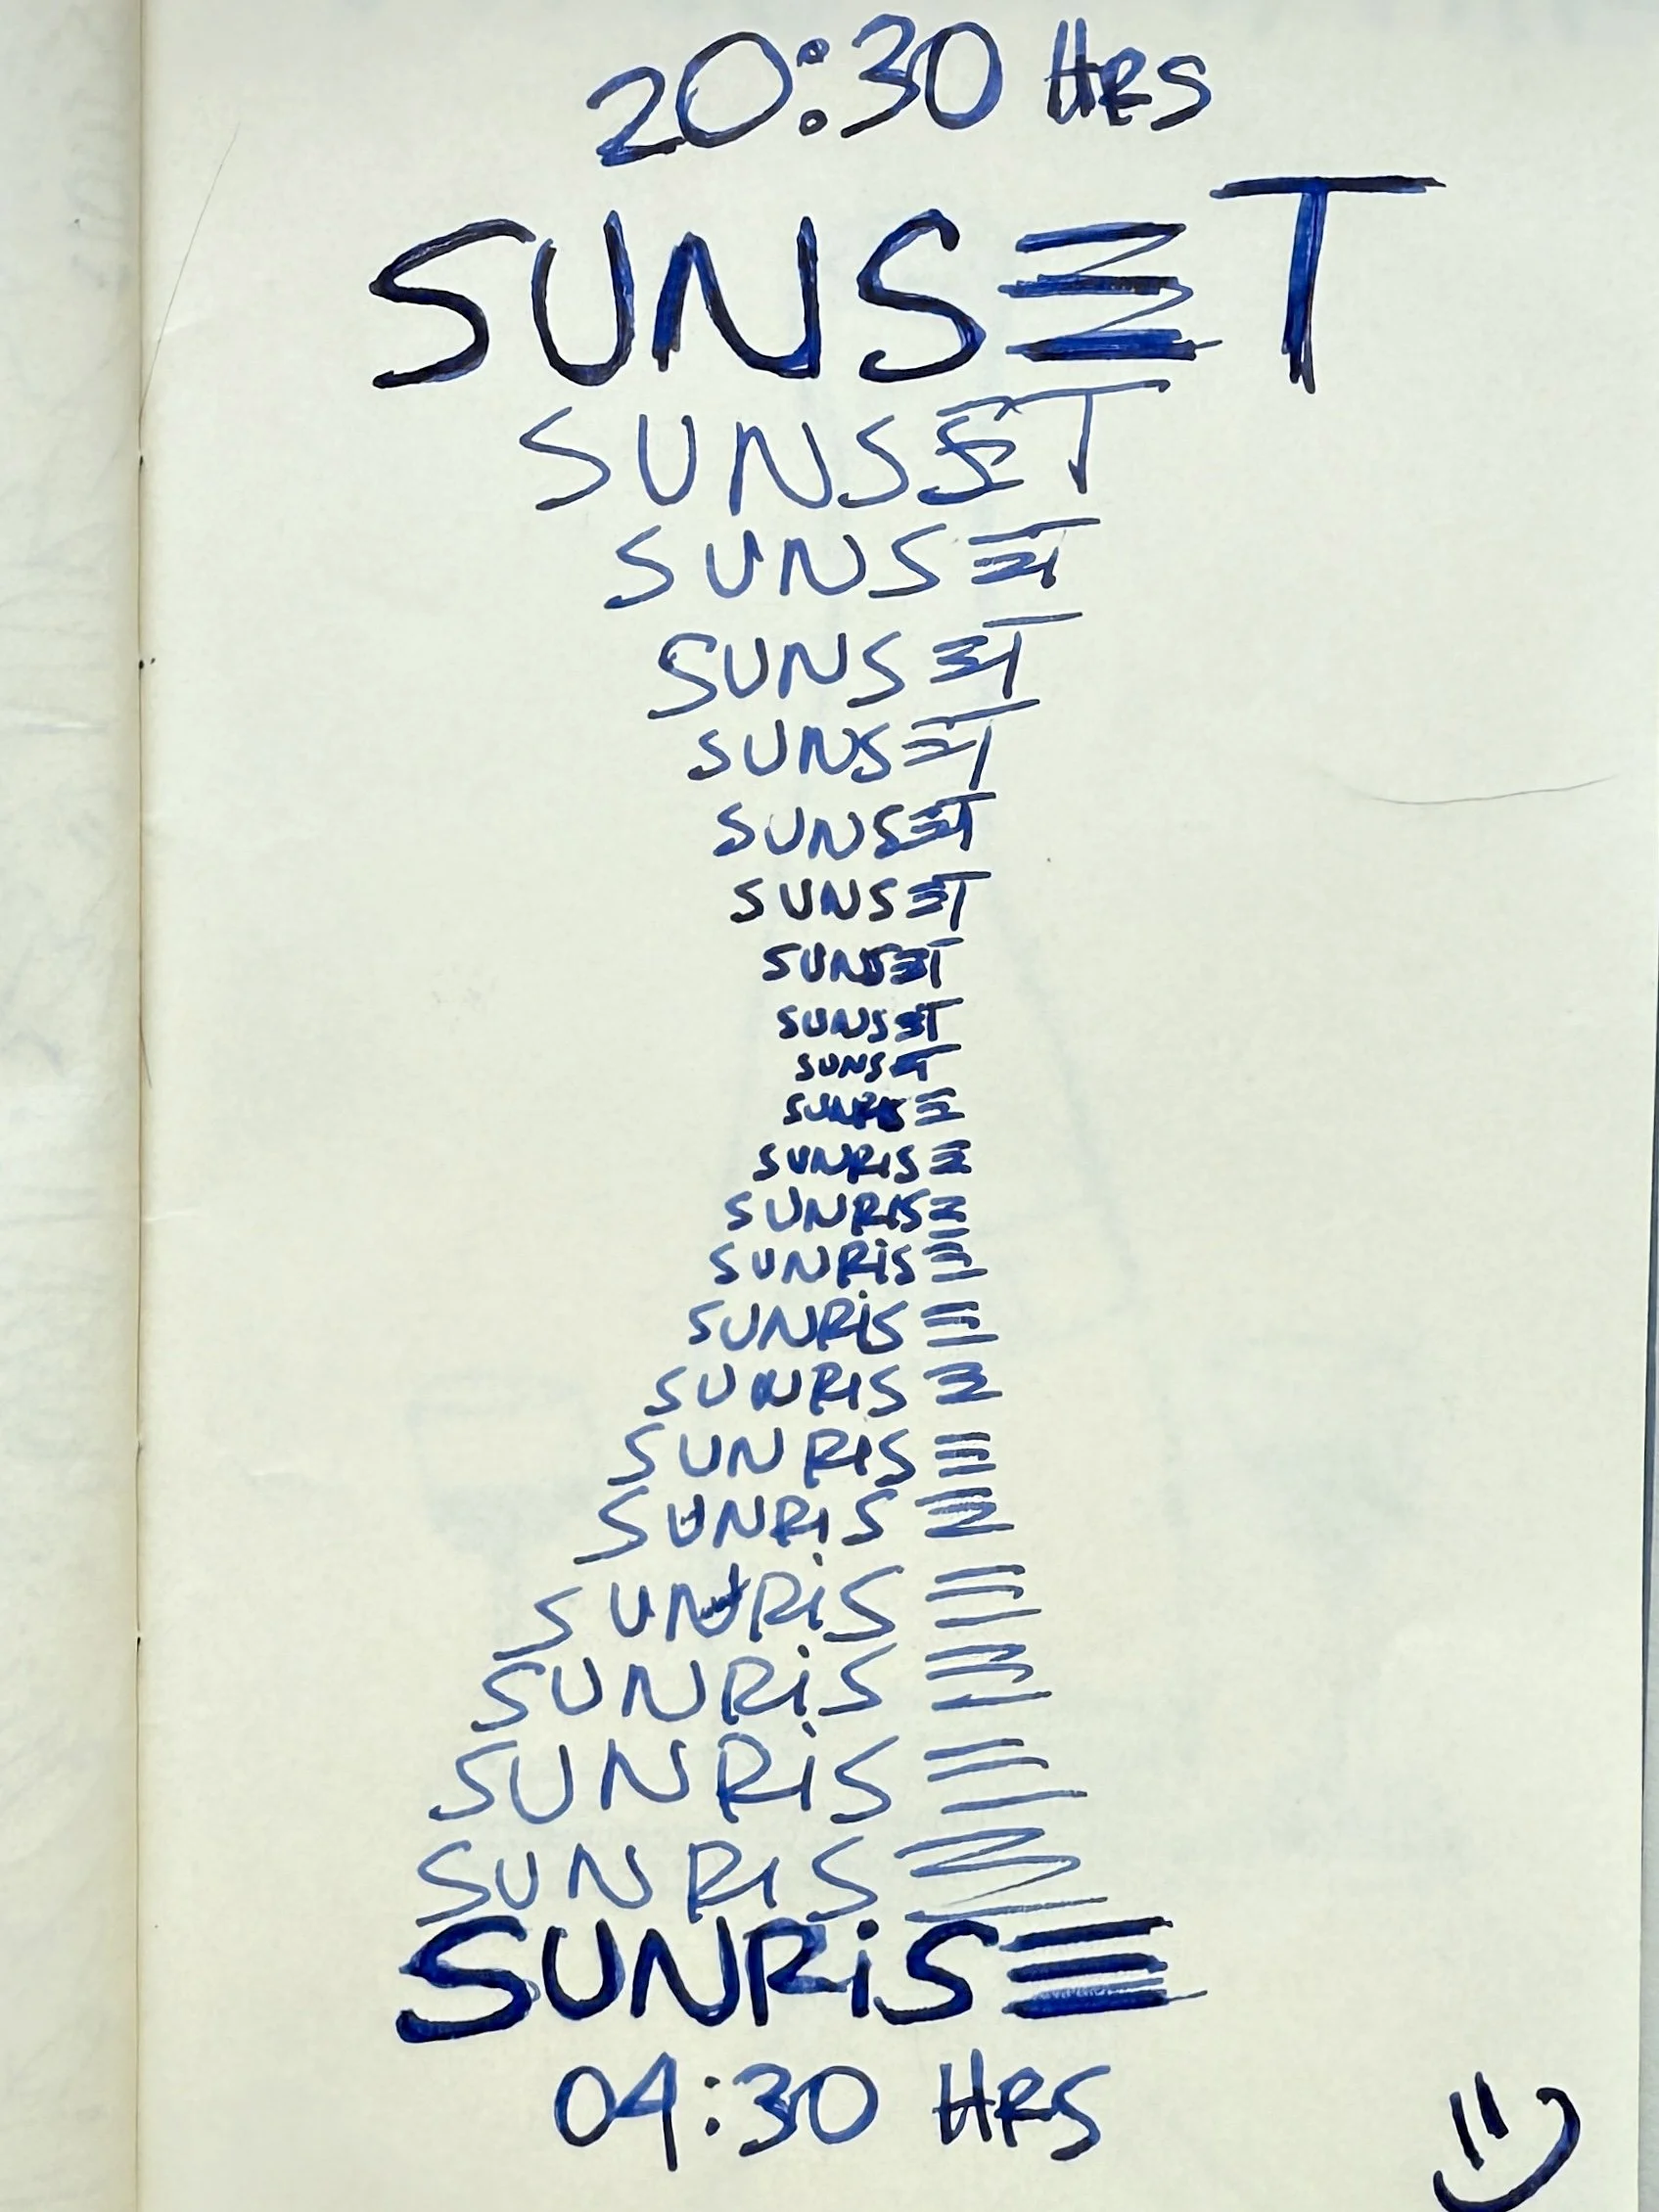 20:30 HRS
SUNSET
SUNSET
SUNSET
SUNSET
SUNSET
SUNSET
SUNSET
SUNSET
SUNSET
SUNSET
SUNRISE
SUNRISE
SUNRISE
SUNRiSE
SUNRiSE
SUNRISE
SUNRISE
SUNRiSE
SUNRiSE
SUNRiSE
SUNRiSE
SUNRISE
SUNRiSE
04:30 HRS